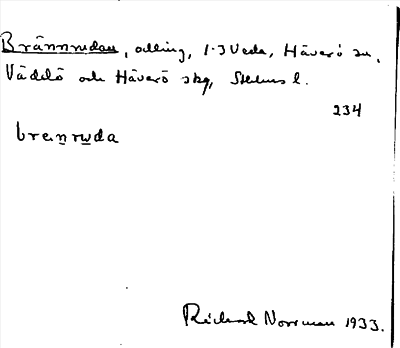 Brännrudan, odling, 1-3 Veda, Häverö sn,
Väddö och Häverö skg, Sthlms l.
234
brenruda
Richard Norrman 1933.